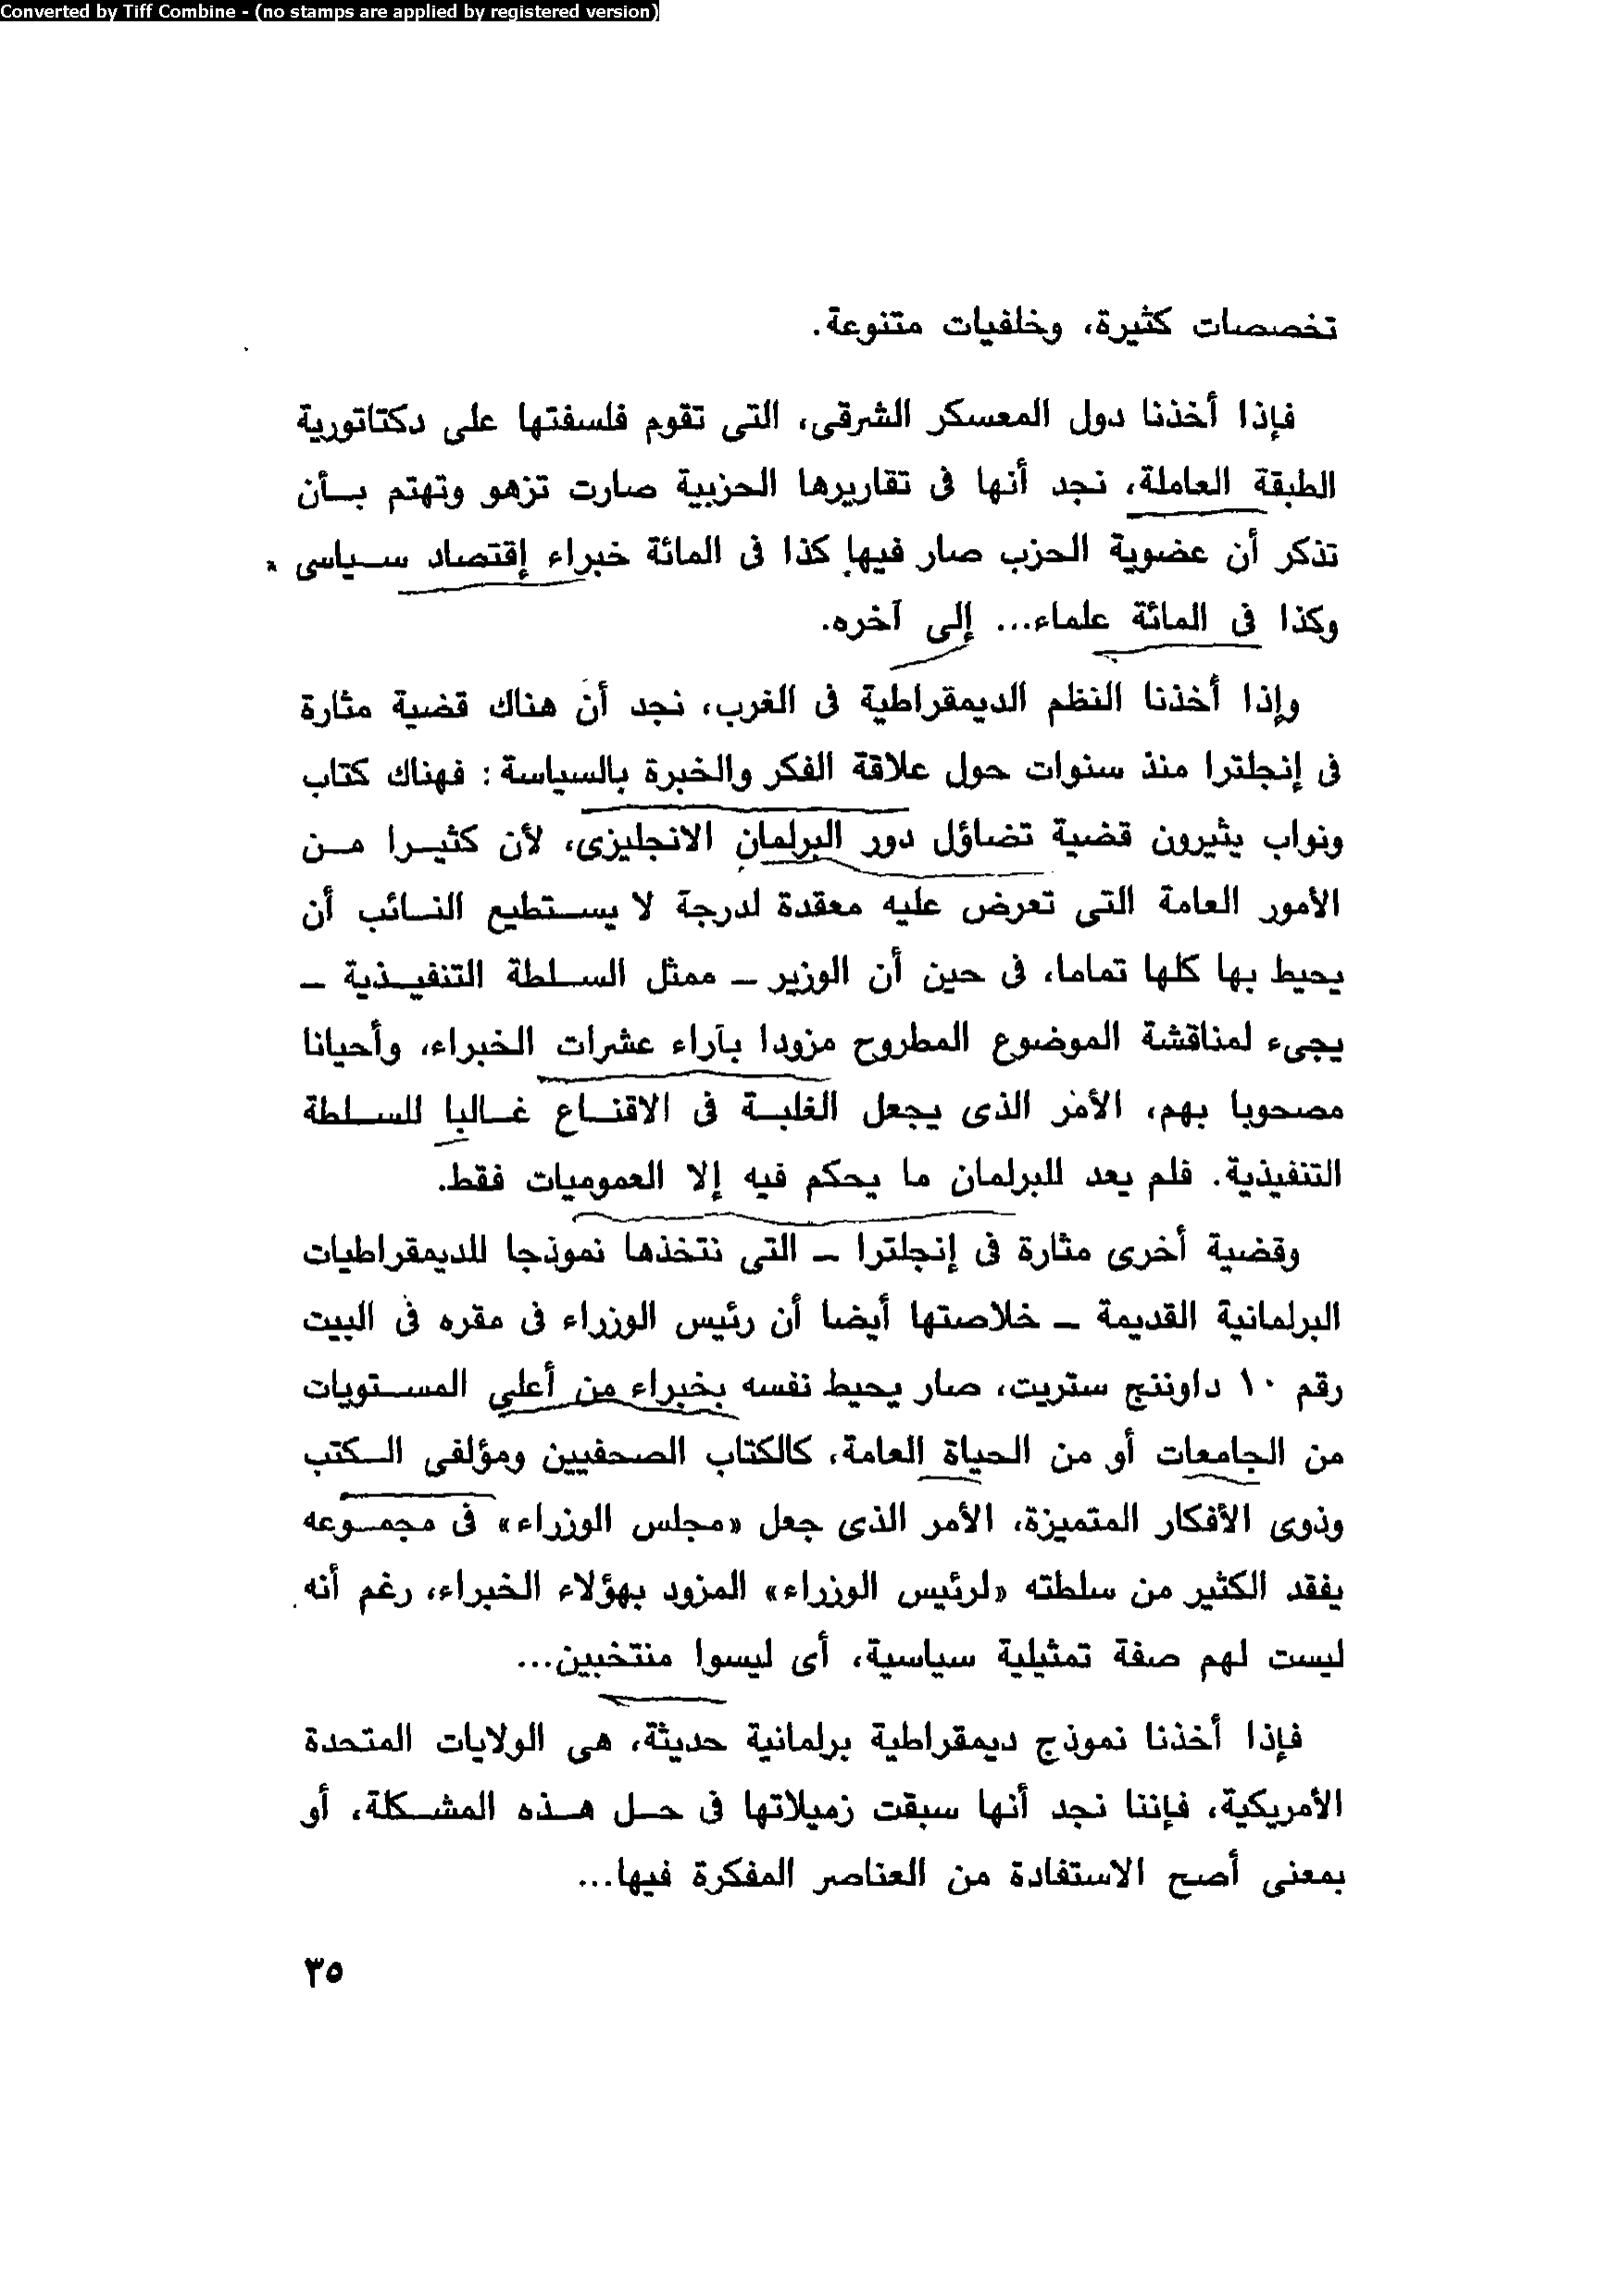 Converted by Tiff Combine - (no stamps are applied by registered version)
تخصصات كثيرة، وخلفيات متنوعة.
فإذا أخذنا دول المعسكر الشرقى، التى تقوم فلسفتها على دكتاتورية
الطبقة العاملة، نجد أنها فى تقاريرها الحزبية صارت تزهو وتهتم بأن
تذكر أن عضوية الحزب صار فيها كذا فى المائة خبراء إقتصاد سياسى
وكذا فى المائة علماء... إلى آخره.
وإذا أخذنا النظم الديمقراطية فى الغرب، نجد أن هناك قضية مثارة
فى إنجلترا منذ سنوات حول علاقة الفكر والخبرة بالسياسة : فهناك كتاب
ونواب يثيرون قضية تضاؤل دور البرلمان الانجليزى، لأن كثيرا من
الأمور العامة التى تعرض عليه معقدة لدرجة لا يستطيع النائب أن
يحيط بها كلها تماما، فى حين أن الوزير - ممثل السلطة التنفيذية -
يجىء لمناقشة الموضوع المطروح مزودا بآراء عشرات الخبراء، وأحيانا
مصحوبا بهم، الأمر الذى يجعل الغلبة فى الاقناع غالبا للسلطة
التنفيذية. فلم يعد للبرلمان ما يحكم فيه إلا العموميات فقط.
وقضية أخرى مثارة فى إنجلترا - التى نتخذها نموذجا للديمقراطيات
البرلمانية القديمة - خلاصتها أيضا أن رئيس الوزراء فى مقره فى البيت
رقم ١٠ داوننج ستريت، صار يحيط نفسه بخبراء من أعلى المستويات
من الجامعات أو من الحياة العامة، كالكتاب الصحفيين ومؤلفى الكتب
وذوى الأفكار المتميزة، الأمر الذى جعل «مجلس الوزراء» فى مجموعه
يفقد الكثير من سلطته «لرئيس الوزراء» المزود بهؤلاء الخبراء، رغم أنه
ليست لهم صفة تمثيلية سياسية، أى ليسوا منتخبين...
فإذا أخذنا نموذج ديمقراطية برلمانية حديثة، هى الولايات المتحدة
الأمريكية، فإننا نجد أنها سبقت زميلاتها فى حل هذه المشكلة، أو
بمعنى أصح الاستفادة من العناصر المفكرة فيها...
٣٥